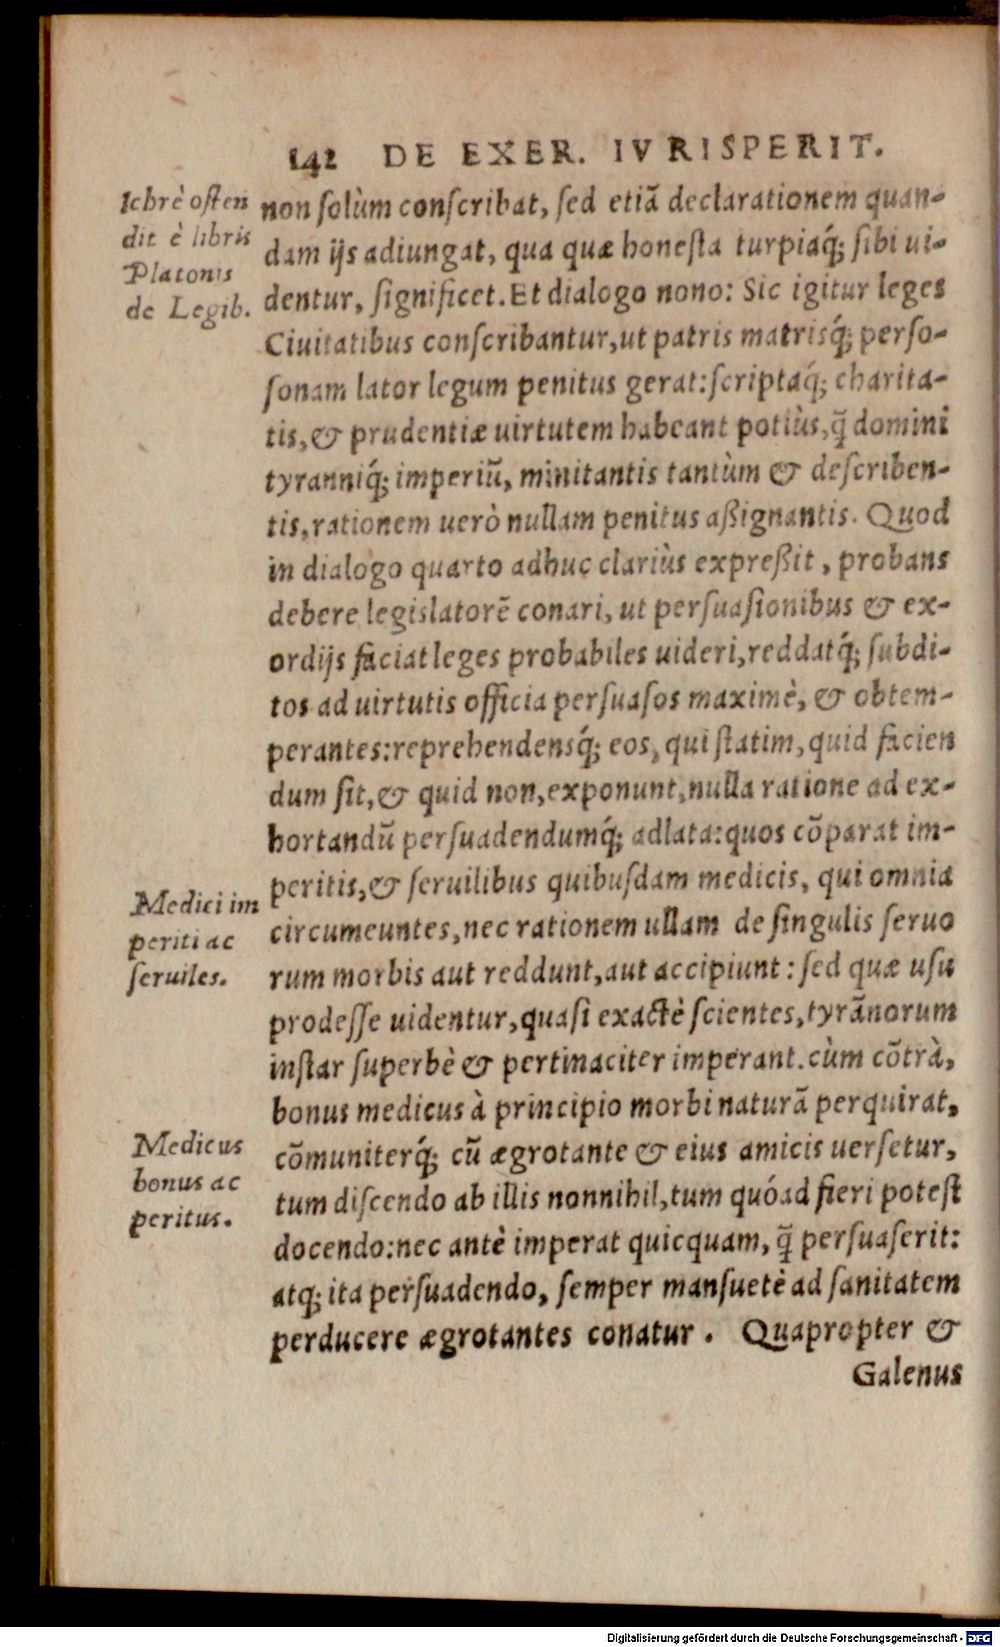 142 DE EXER. IVRISPERIT.
lebrè osten
dit è libris
Platonis
de Legib.
non ſolùm conſcribat, ſed etiã declarationem quan-
dam ijs adiungat, qua quæ honeſta turpiaq́; ſibi ui-
dentur, ſignificet. Et dialogo nono: Sic igitur leges
Ciuitatibus conſcribantur, ut patris matrisq́; perſo-
ſonam lator legum penitus gerat: ſcriptaq́; charita-
tis, & prudentiæ uirtutem habeant potiùs, q̃ domini
tyranniq́; imperiũ, minitantis tantùm & deſcriben-
tis, rationem uerò nullam penitus aßignantis. Quod
in dialogo quarto adhuc clariùs expreßit, probans
debere legislatorẽ conari, ut perſuaſionibus & ex-
ordijs faciat leges probabiles uideri, reddatq́; ſubdi-
tos ad uirtutis officia perſuaſos maximè, & obtem-
perantes: reprehendensq́; eos, qui ſtatim, quid facien
dum ſit, & quid non, exponunt, nulla ratione ad ex-
hortandũ perſuadendumq́; adlata: quos cõparat im-
peritis, & ſeruilibus quibuſdam medicis, qui omnia
circumeuntes, nec rationem ullam de ſingulis ſeruo
rum morbis aut reddunt, aut accipiunt: ſed quæ uſu
prodeſſe uidentur, quaſi exactè ſcientes, tyrãnorum
inſtar ſuperbè & pertinaciter imperant. cùm cõtrà,
bonus medicus à principio morbi naturã perquirat,
cõmuniterq́; cũ ægrotante & eius amicis uerſetur,
tum diſcendo ab illis nonnihil, tum quóad fieri poteſt
docendo: nec antè imperat quicquam, q̃ perſuaſerit:
atq; ita perſuadendo, ſemper manſuetè ad ſanitatem
perducere ægrotantes conatur. Quapropter &
Galenus
Medici im
periti ac
ſeruiles.
Medicus
bonus ac
peritus.
Digitalisierung gefördert durch die Deutsche Forschungsgemeinschaft - DFG